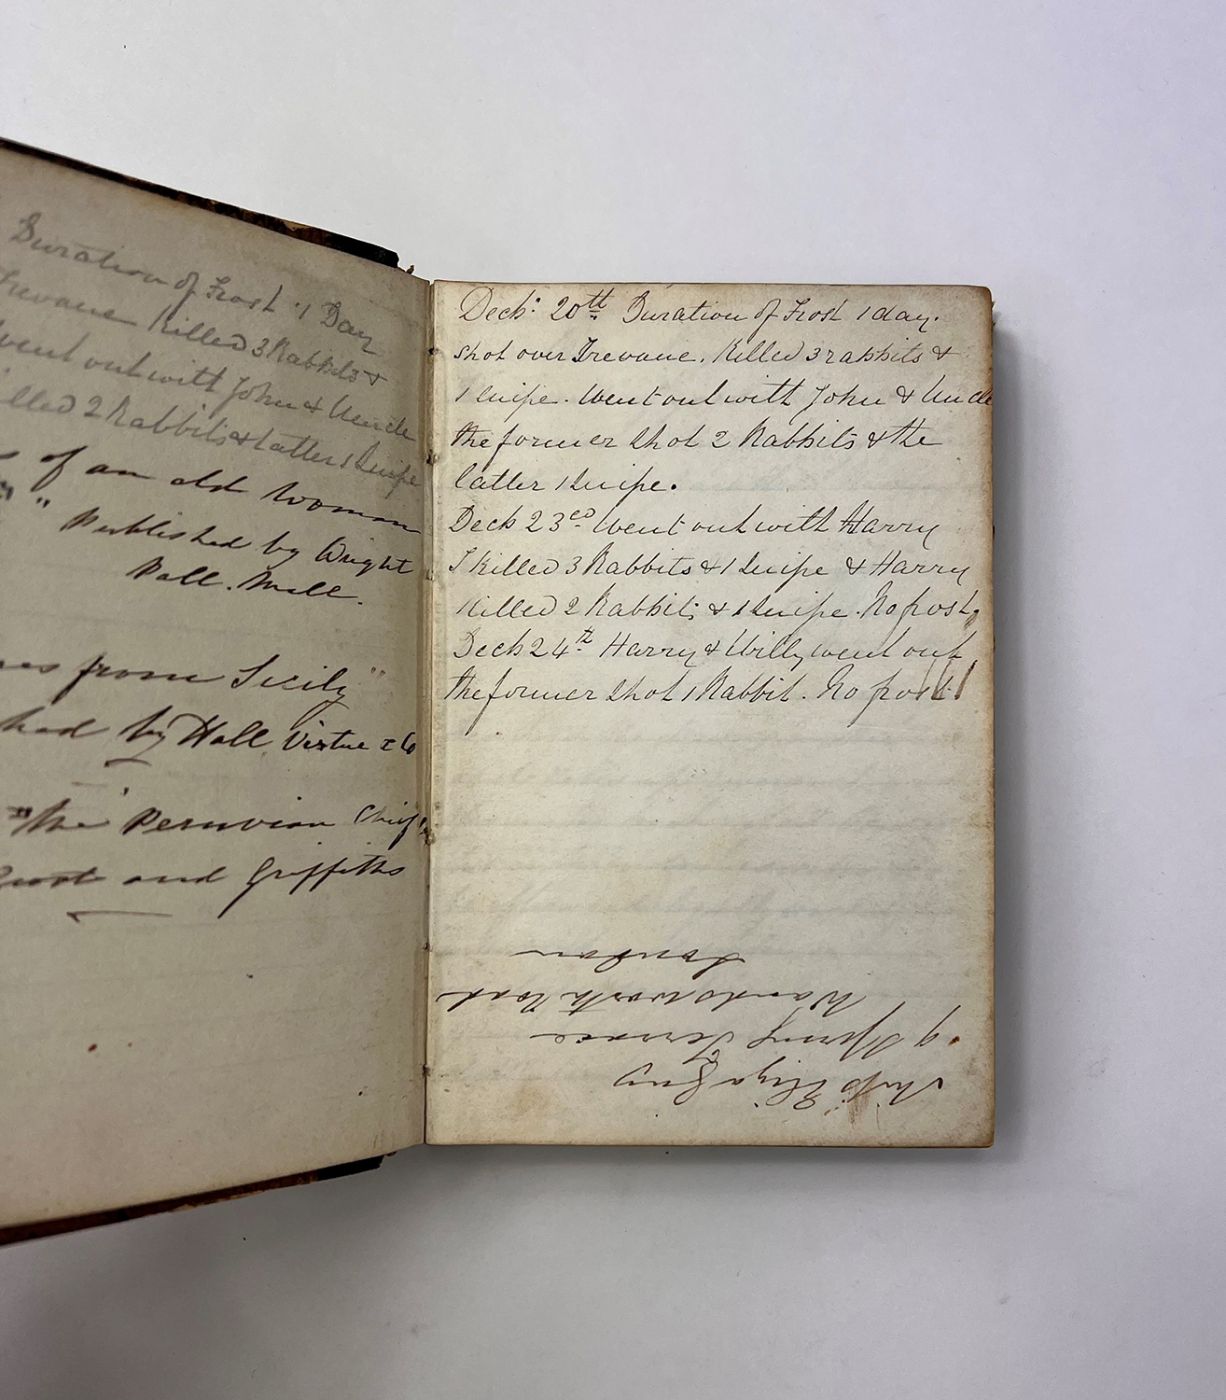 Duration of Frost 1 Day
Trevane Killed 3 Rabbits &
went out with John & Uncle
killed 2 Rabbits & latter 1 Snipe
of an old Woman
" Published by Wright
Pall. Mall.
from Sicily"
by Hall, Virtue & Co
"the Peruvian Chief"
and Griffiths
Decb: 20th Duration of Frost 1 day.
shot over Trevane. Killed 3 rabbits &
1 Snipe. Went out with John & Uncle
the former shot 2 Rabbits & the
latter 1 Snipe.
Decb 23ed Went out with Harry
I Killed 3 Rabbits & 1 Snipe & Harry
Killed 2 Rabbits & 1 Snipe. No frost,
Decb 24th Harry & Willy went out
the former shot 1 Rabbit. No frost
Miss Eliza
9 Spring Terrace
Wandsworth Road
London